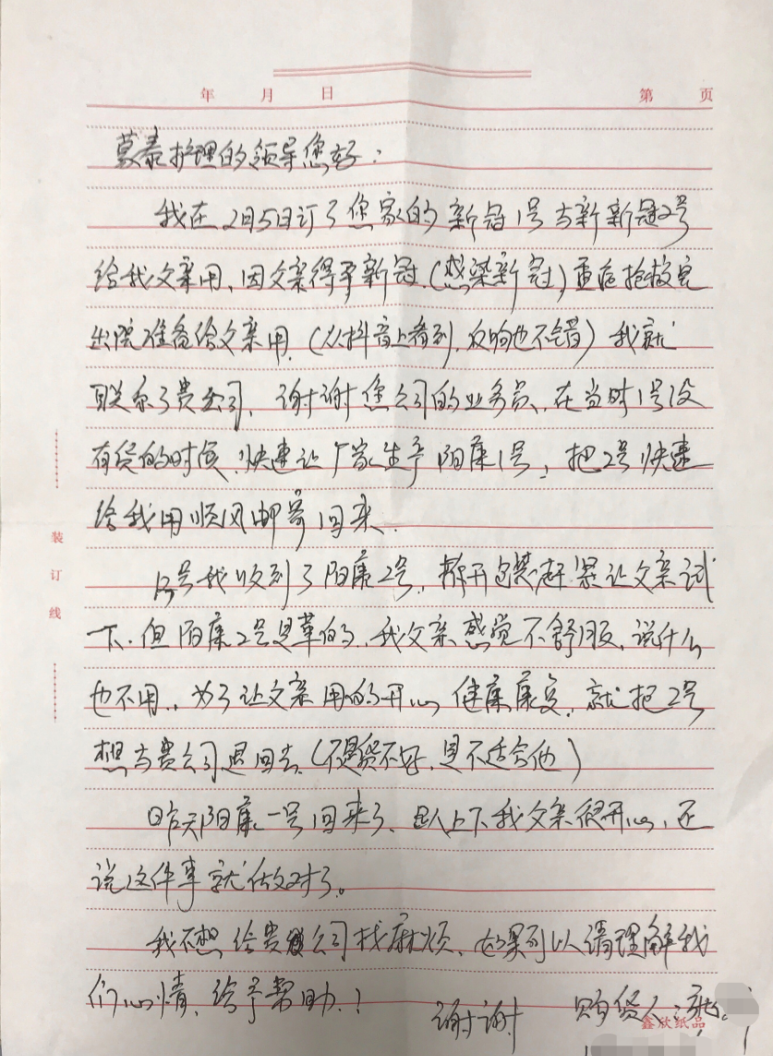 年 月 日 第 页
慕泰护理的领导您好：
我在2月5日订了您家的新冠1号与新新冠2号
给我父亲用、因父亲得平新冠.(感染新冠)重症抢救完
出院准备给父亲用.(从抖音上看到.反响也不错)我就
联系了贵公司、谢谢您公司的业务员、在当时1号没
有货的时候.快速让厂家生产阳康1号；把2号快速
给我用顺风邮寄回来.
13号我收到了阳康2号、拆开包装赶紧让父亲试
一下.但阳康2号是革的、我父亲感觉不舒服、说什么
也不用.、为了让父亲用的开心健康康复.就把2号
想与贵公司退回去.(不是货不好.是不适合他)
昨天阳康一号回来了、上下我父亲很开心，还
说这件事就你做对了。
我不想给贵公司找麻烦、如果可以请理解我
们心情、给予帮助.！
谢谢 购货人：
装
订
线
鑫欣纸品